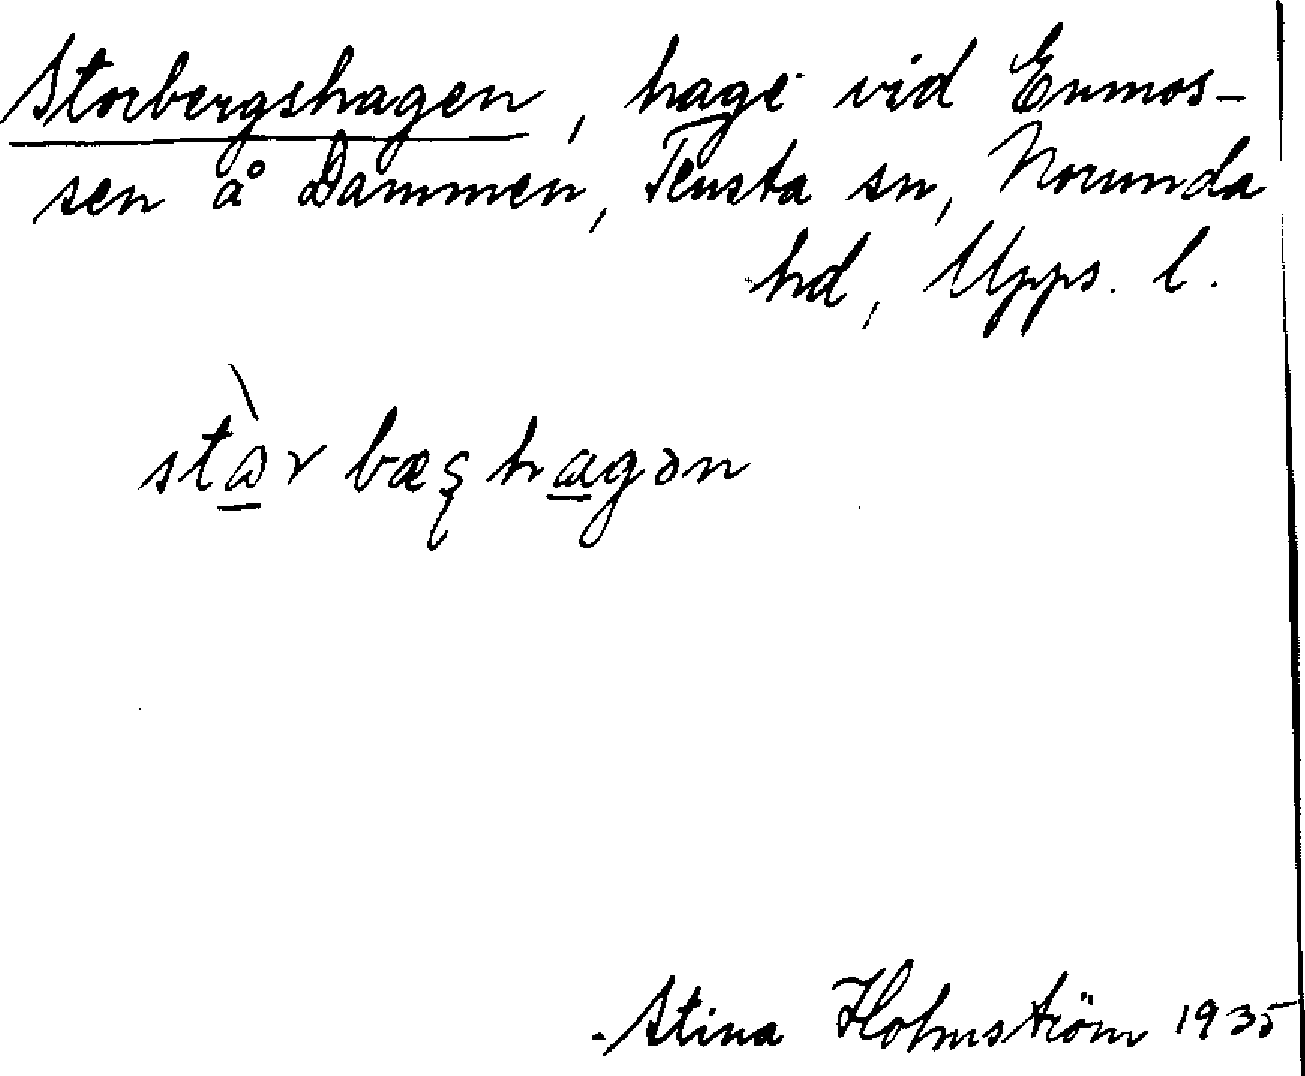 Storbergshagen, hage vid Enmos-
sen å Dammen, Tensta sn, Norunda
hd, Upps. l.
stɷ̀r bæʂhagən
Stina Holmström 1935